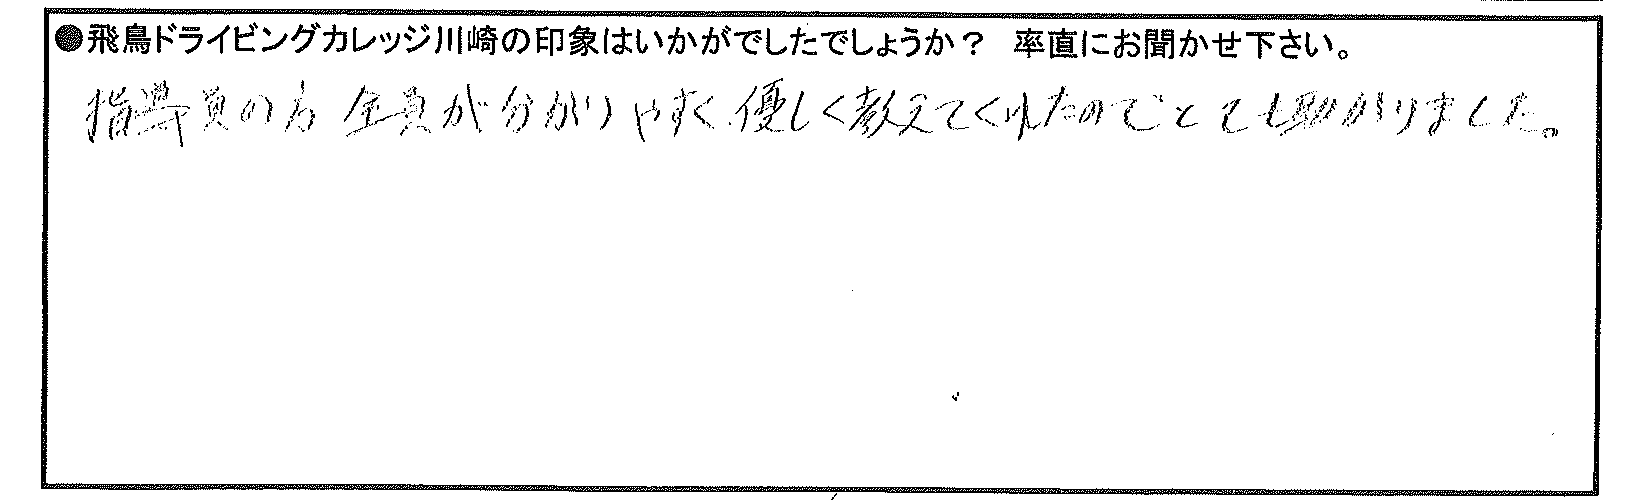 ●飛鳥ドライビングカレッジ川崎の印象はいかがでしたでしょうか？ 率直にお聞かせ下さい。
指導員の方全員が分かりやすく優しく教えてくれたのでとても助かりました。